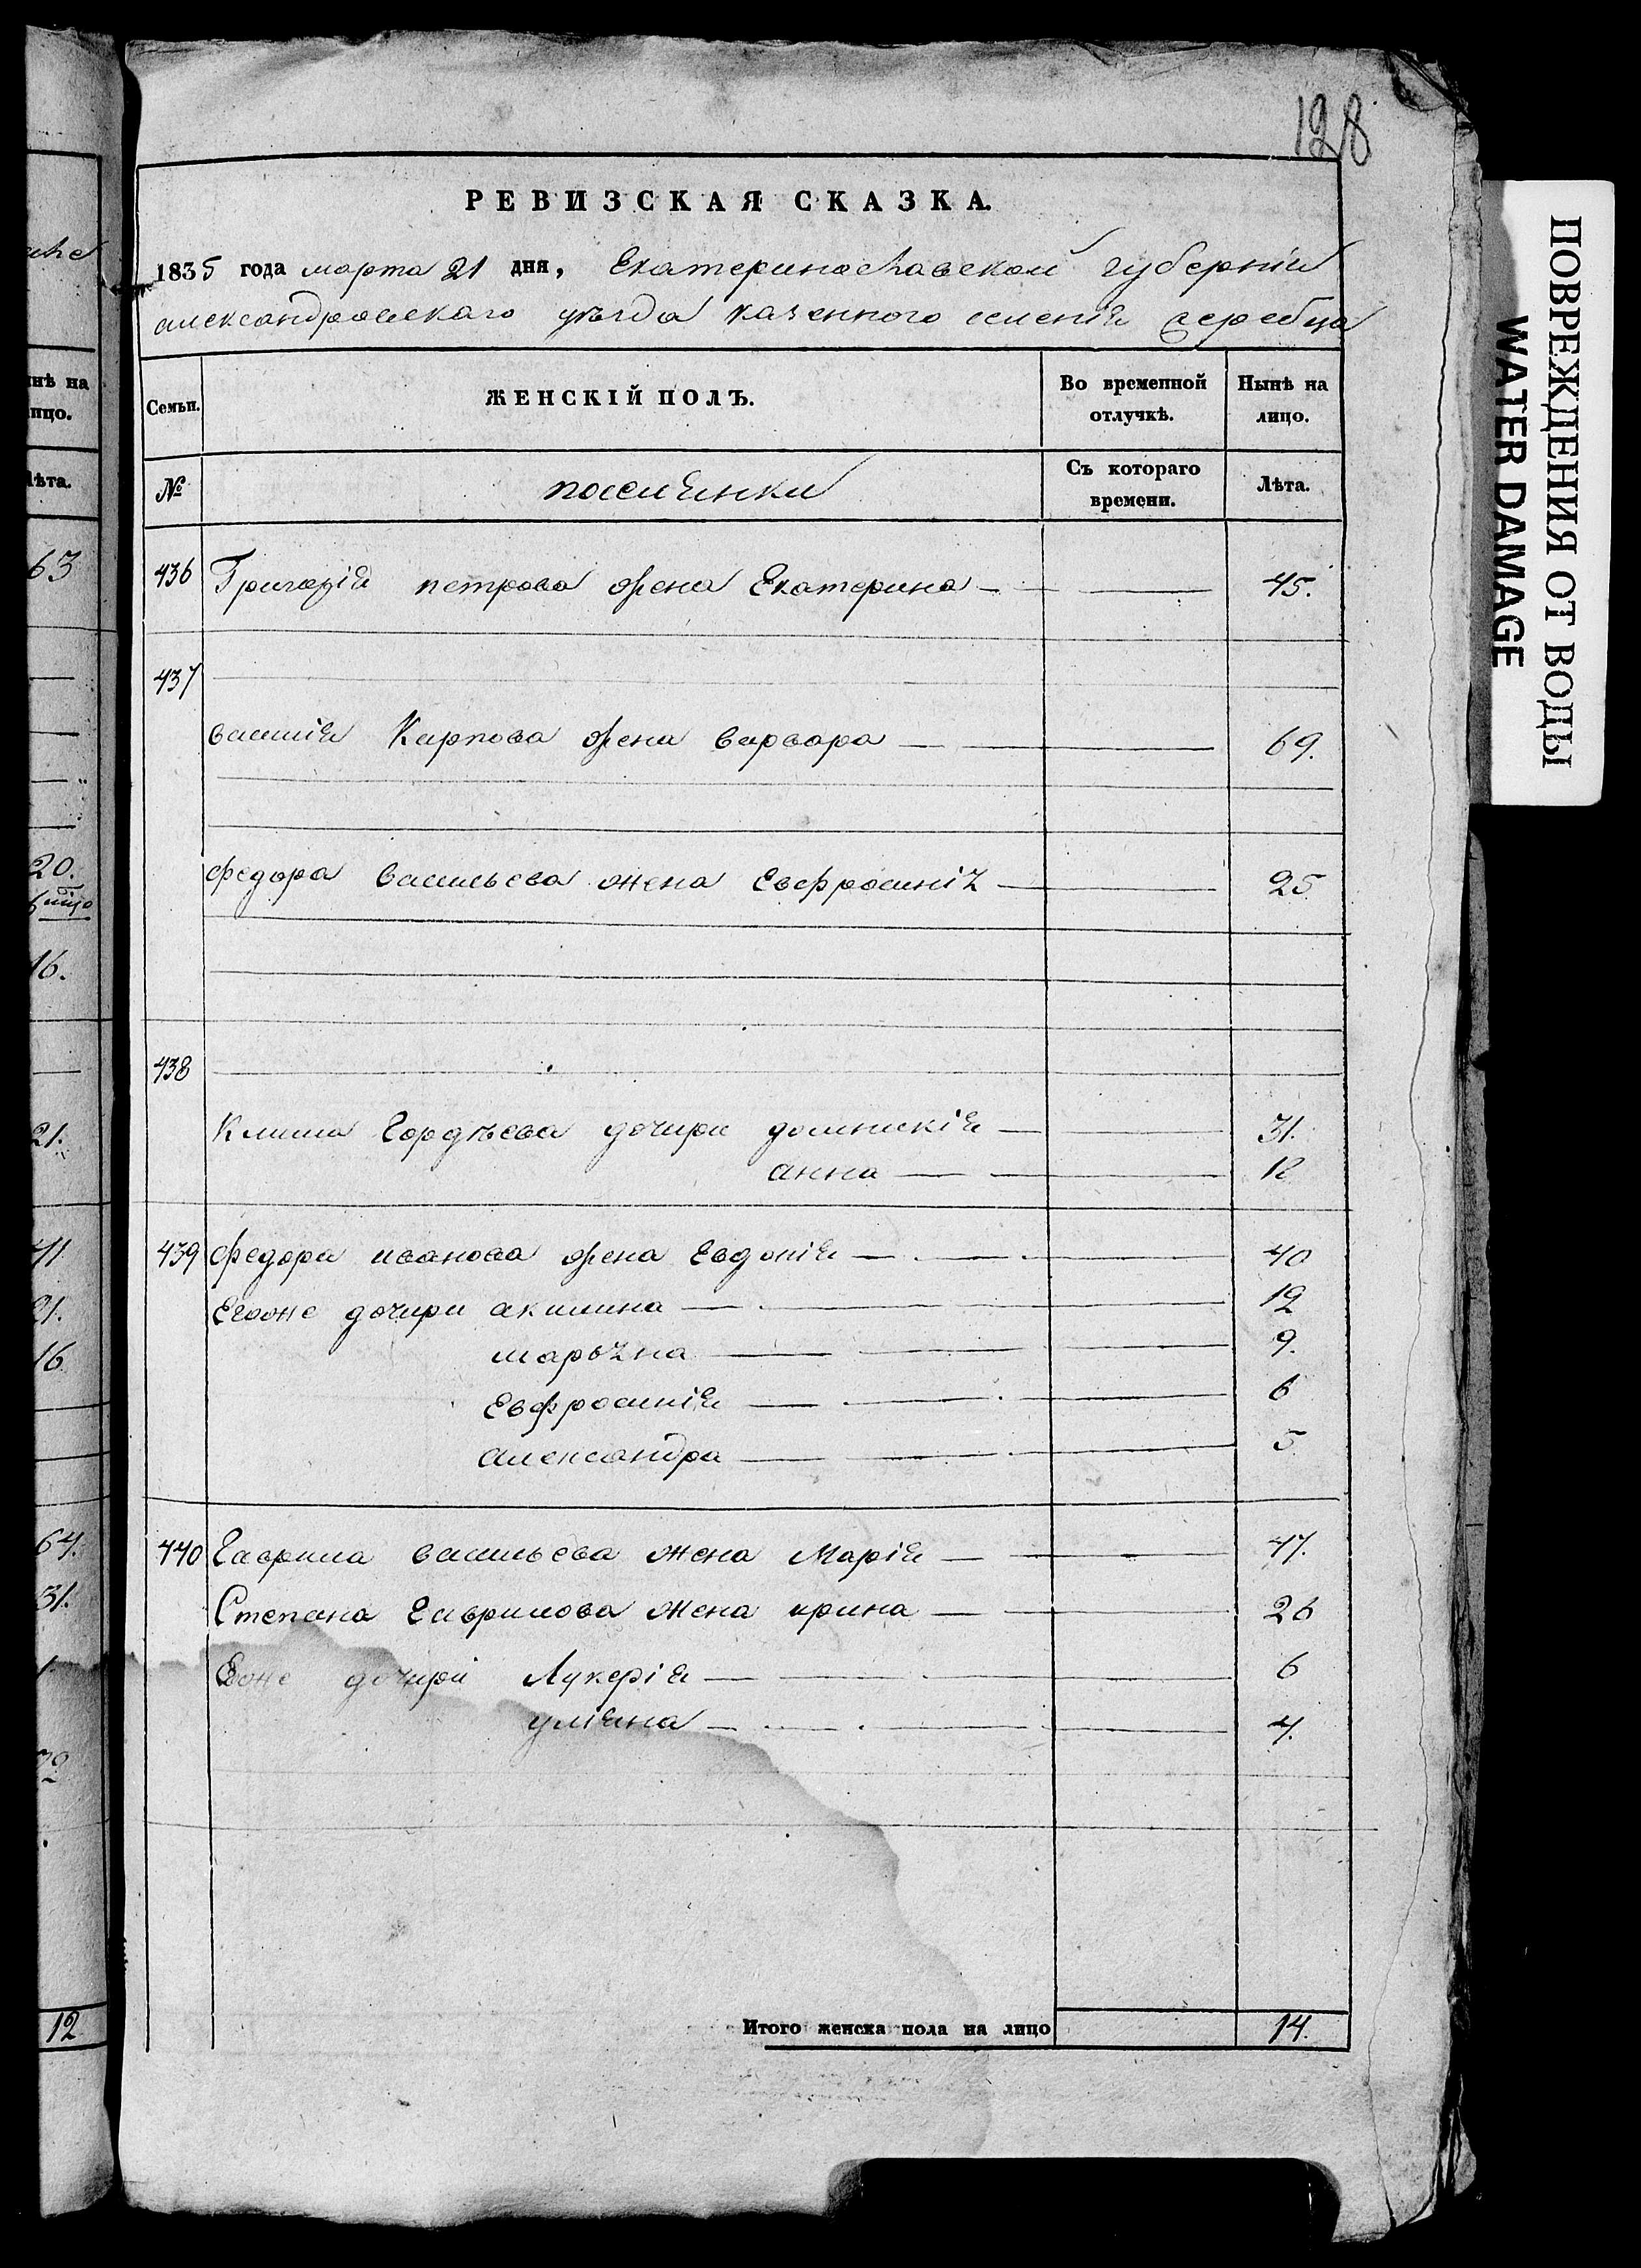 128
РЕВИЗСКАЯ СКАЗКА.
1835 года марта 21 дня, Екатеринославской губерніи
александровскаго уѣзда казенного селенія серебца
Семьи.
ЖЕНСКІЙ ПОЛЪ.
Во временной отлучкѣ.
Нынѣ на лицо.
№
поселянки
Съ котораго времени.
Лѣта.
436 Григорія петрова жена Екатерина — 45.
437
василія Карпова жена варвара — 69.
федора васильева жена Евфросинія — 25
438
Клима Гордѣева дочири домникія — 31.
анна — 12
439 федора иванова жена Евдокія — 40
Егоже дочири акилина — 12
марьяна — 9.
Евфросинія — 6
александра — 5
440 Гаврила васильева жена Марія — 47.
Степана Гаврилова жена ирина — 26
Егоже дочири Лукерія — 6
уліяна — 4.
Итого женска пола на лицо 14.
нѣ на
ицо.
Лѣта.
63
20.
16.
21.
41
21.
16
64.
31.
12
ПОВРЕЖДЕНИЯ ОТ ВОДЫ
WATER DAMAGE